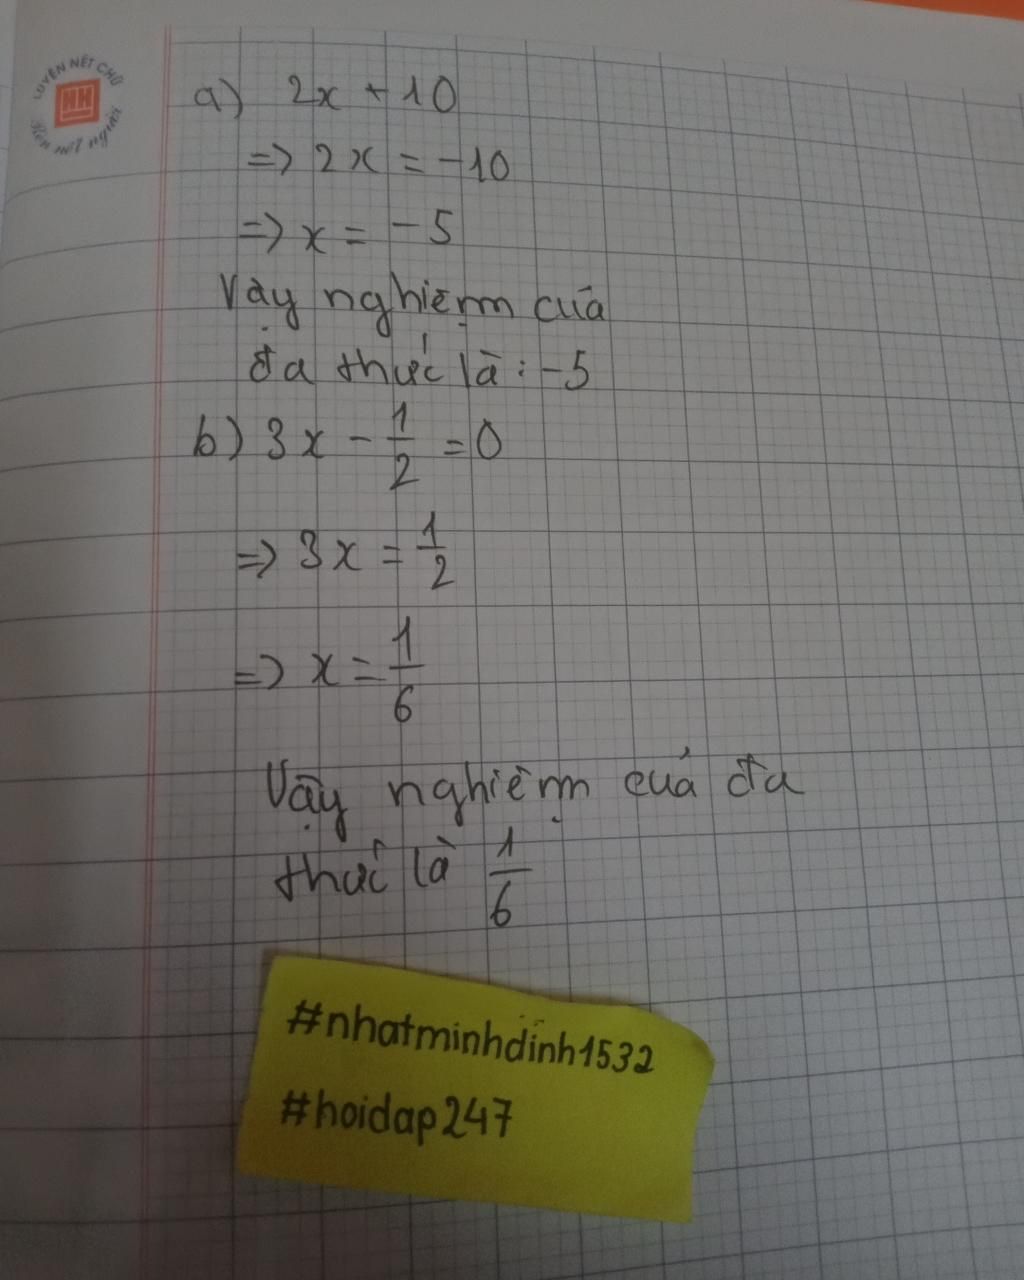 LUYỆN NÉT CHỮ
Rèn nết người
a) 2x + 10
=> 2x = -10
=> x = -5
Vậy nghiệm của
đa thức là : -5
b) 3x - 1/2 = 0
=> 3x = 1/2
=> x = 1/6
Vậy nghiệm của đa
thức là 1/6
#nhatminhdinh1532
#hoidap247